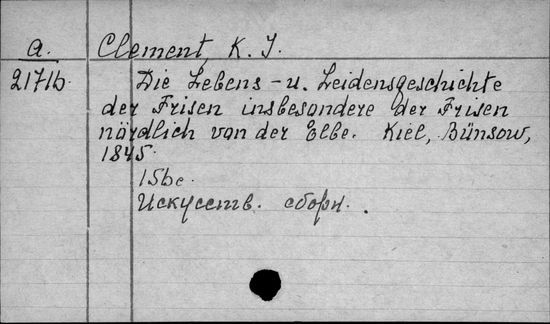 a. Clement, K. J.
21716. Die Lebens - u. Leidensgeschichte
der Frisen insbesondere der Frisen
nördlich von der Elbe. Kiel, Bünsow,
1845.
156 с.
Искусств. сборн.